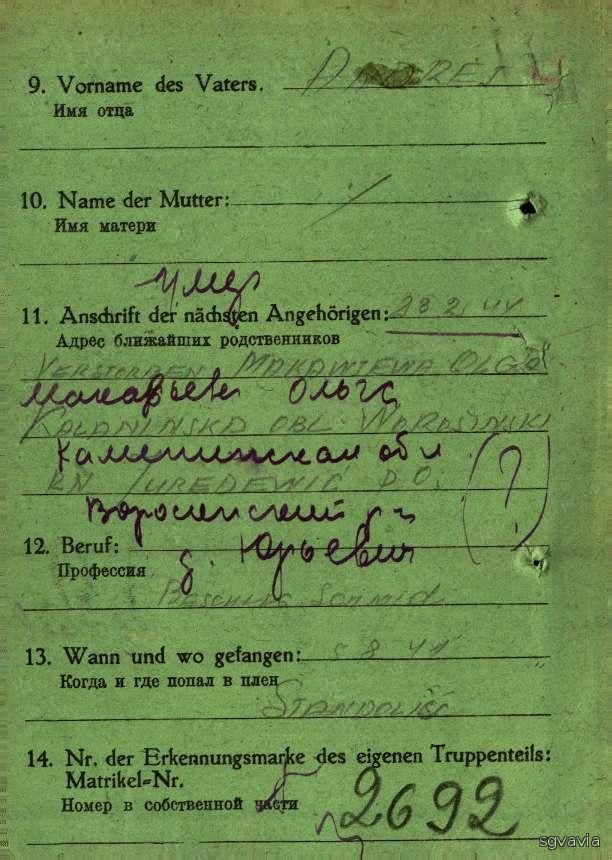 9. Vorname des Vaters. ANDRES
Имя отца
10. Name der Mutter: /
Имя матери
умер
11. Anschrift der nächsten Angehörigen: 23 2 44
Адрес ближайших родственников
VERSTORBEN MAKAWIEWA OLGA
Макарьева Ольга
OBL.
Калининская обл
RN D.O.
(?)
12. Beruf: д. Юрьевич
Профессия
SCHMID
13. Wann und wo gefangen: 5 8 41
Когда и где попал в плен
14. Nr. der Erkennungsmarke des eigenen Truppenteils:
Matrikel=Nr.
Номер в собственной части
2692
sgvavia